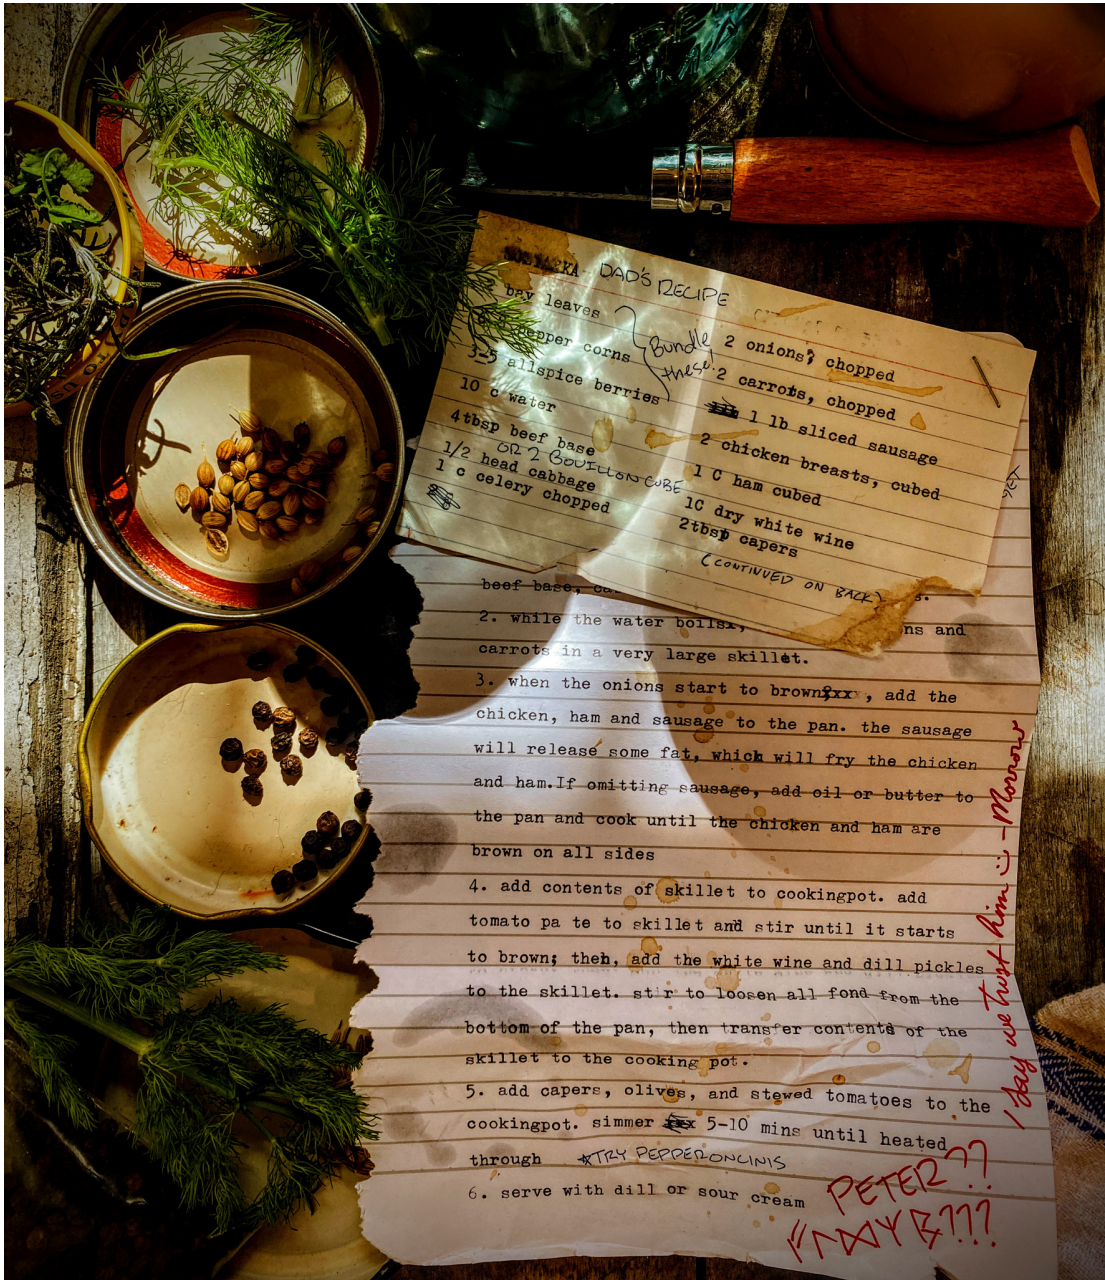 DAD'S RECIPE
bay leaves
pepper corns
3-5 allspice berries
Bundle
these!
10 c water
4tbsp beef base
OR 2 BOUILLON CUBE
1/2 head cabbage
1 c celery chopped
2 onions, chopped
2 carrots, chopped
1 lb sliced sausage
2 chicken breasts, cubed
1 C ham cubed
1C dry white wine
2tbsp capers
(CONTINUED ON BACK)
beef base,
2. while the water boils, ns and
carrots in a very large skillet.
3. when the onions start to brown , add the
chicken, ham and sausage to the pan. the sausage
will release some fat, which will fry the chicken
and ham.If omitting sausage, add oil or butter to
the pan and cook until the chicken and ham are
brown on all sides
4. add contents of skillet to cookingpot. add
tomato pa te to skillet and stir until it starts
to brown; then, add the white wine and dill pickles
to the skillet. stir to loosen all fond from the
bottom of the pan, then transfer contents of the
skillet to the cooking pot.
5. add capers, olives, and stewed tomatoes to the
cookingpot. simmer 5-10 mins until heated
through *TRY PEPPERONCINIS
6. serve with dill or sour cream
I say we trust him :) -Morrow
PETER??